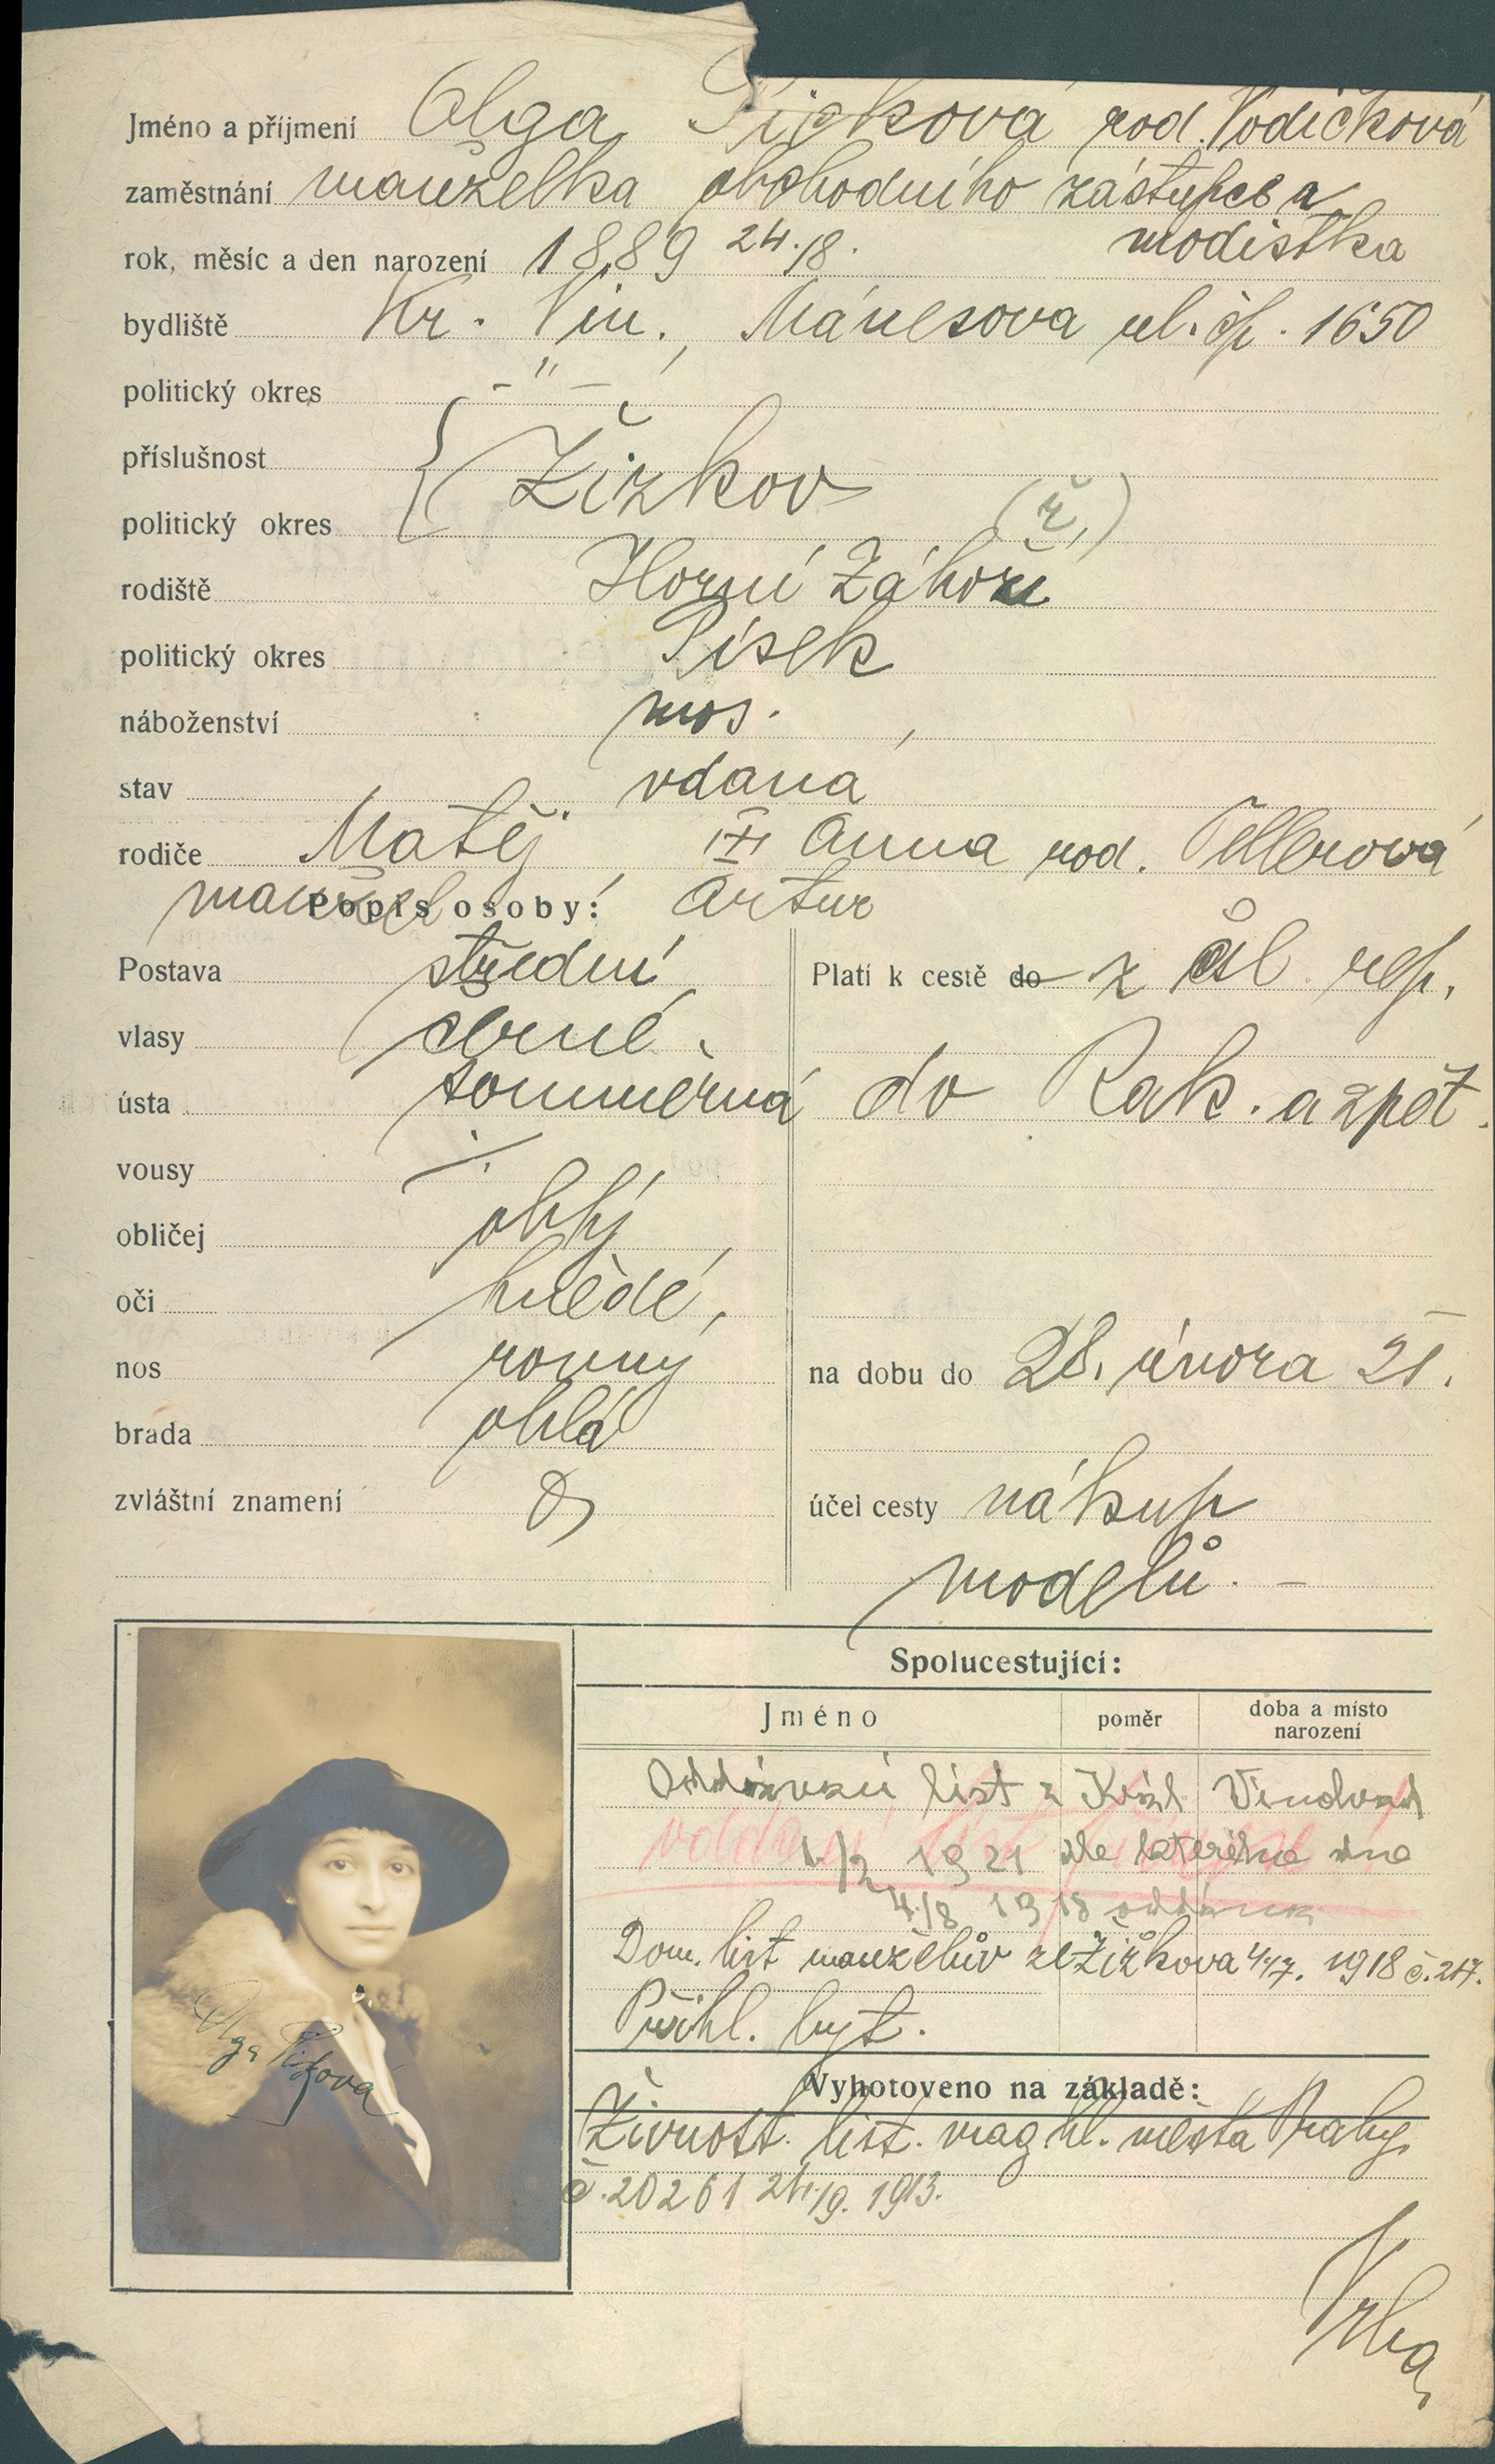 Jméno a příjmení Olga Picková rod. Vodičková
zaměstnání manželka obchodního zástupce a
modistka
rok, měsíc a den narození 1889 24./8.
bydliště Kr. Vin., Mánesova ul. čp. 1650
politický okres -"-
příslušnost Žižkov
politický okres (ž.)
rodiště Horní Záhoří
politický okres Písek
náboženství mos.
stav vdaná
rodiče Matěj Anna rod. Tellerová
manžel Artur
Popis osoby:
Postava střední
vlasy černé
ústa souměrná
vousy ./.
obličej oblý
oči hnědé
nos rovný
brada oblá
zvláštní znamení
Platí k cestě do z čsl. rep.
do Rak. a zpět.
na dobu do 28. února 21.
účel cesty nákup
modelů. –
Spolucestující:
Jméno poměr doba a místo narození
Oddávací list z Král Vinohrad
1./2 1921 dle kterého dne
4./8 1918 oddána
Dom. list manželův ze Žižkova 4./7. 1918 č. 217.
Přihl. byt.
Vyhotoveno na základě:
Živnost. list. mag hl. města Prahy
č. 20261 24./9. 1913.
Olga Picková
Vrba